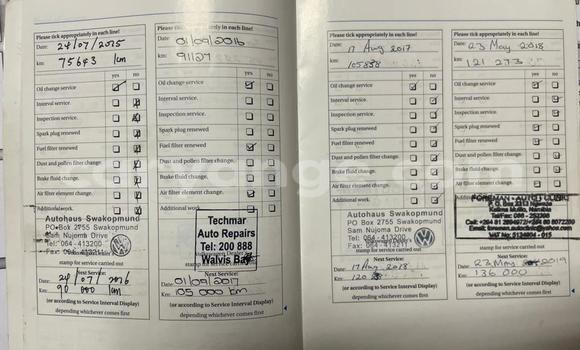 Please tick appropriately in each line!
Date: 24/07/2015
km: 75643 km
yes no
Oil change service
Interval service.
Inspection service.
Spark plug renewed
Fuel filter renewed
Dust and pollen filter change.
Brake fluid change.
Air filter element change.
Additional work.
Autohaus Swakopmund
PO Box 2755 Swakopmund
Sam Nujoma Drive
Tel: 064 - 413200
Fax: 064
stamp for service carried out
Next Service:
Date:
Km: 90 000 km
(or according to Service Interval Display)
depending whichever comes first
Please tick appropriately in each line!
Date: 01/09/2016
km: 91127
yes no
Oil change service
Interval service.
Inspection service.
Spark plug renewed
Fuel filter renewed
Dust and pollen filter change.
Brake fluid change.
Air filter element change.
Additional work.
Techmar
Auto Repairs
Tel: 200 888
Walvis Bay
stamp for service carried out
Next Service:
Date: 01/09/2017
105 000 km
(or according to Service Interval Display)
depending whichever comes first
Please tick appropriately in each line!
Date: 17 Aug 2017
km: 105838
yes no
Oil change service
Interval service.
Inspection service.
Spark plug renewed
Fuel filter renewed
Dust and pollen filter change.
Brake fluid change.
Air filter element change.
Additional work.
Autohaus Swakopmund
PO Box 2755 Swakopmund
Sam Nujoma Drive
Tel: 064 - 413200
Fax: 064 -
stamp for service carried out
Next Service:
Date: 17 Aug 2018
Km:
(or according to Service Interval Display)
depending whichever comes first
Please tick appropriately in each line!
Date: 23 May 2018
km: 121 273
yes no
Oil change service
Interval service.
Inspection service.
Spark plug renewed
Fuel filter renewed
Dust and pollen filter change.
Brake fluid change.
Air filter element change.
Additional work.
stamp for service carried out
Next Service:
Date: 23 May 2019
Km: 136 000
(or according to Service Interval Display)
depending whichever comes first